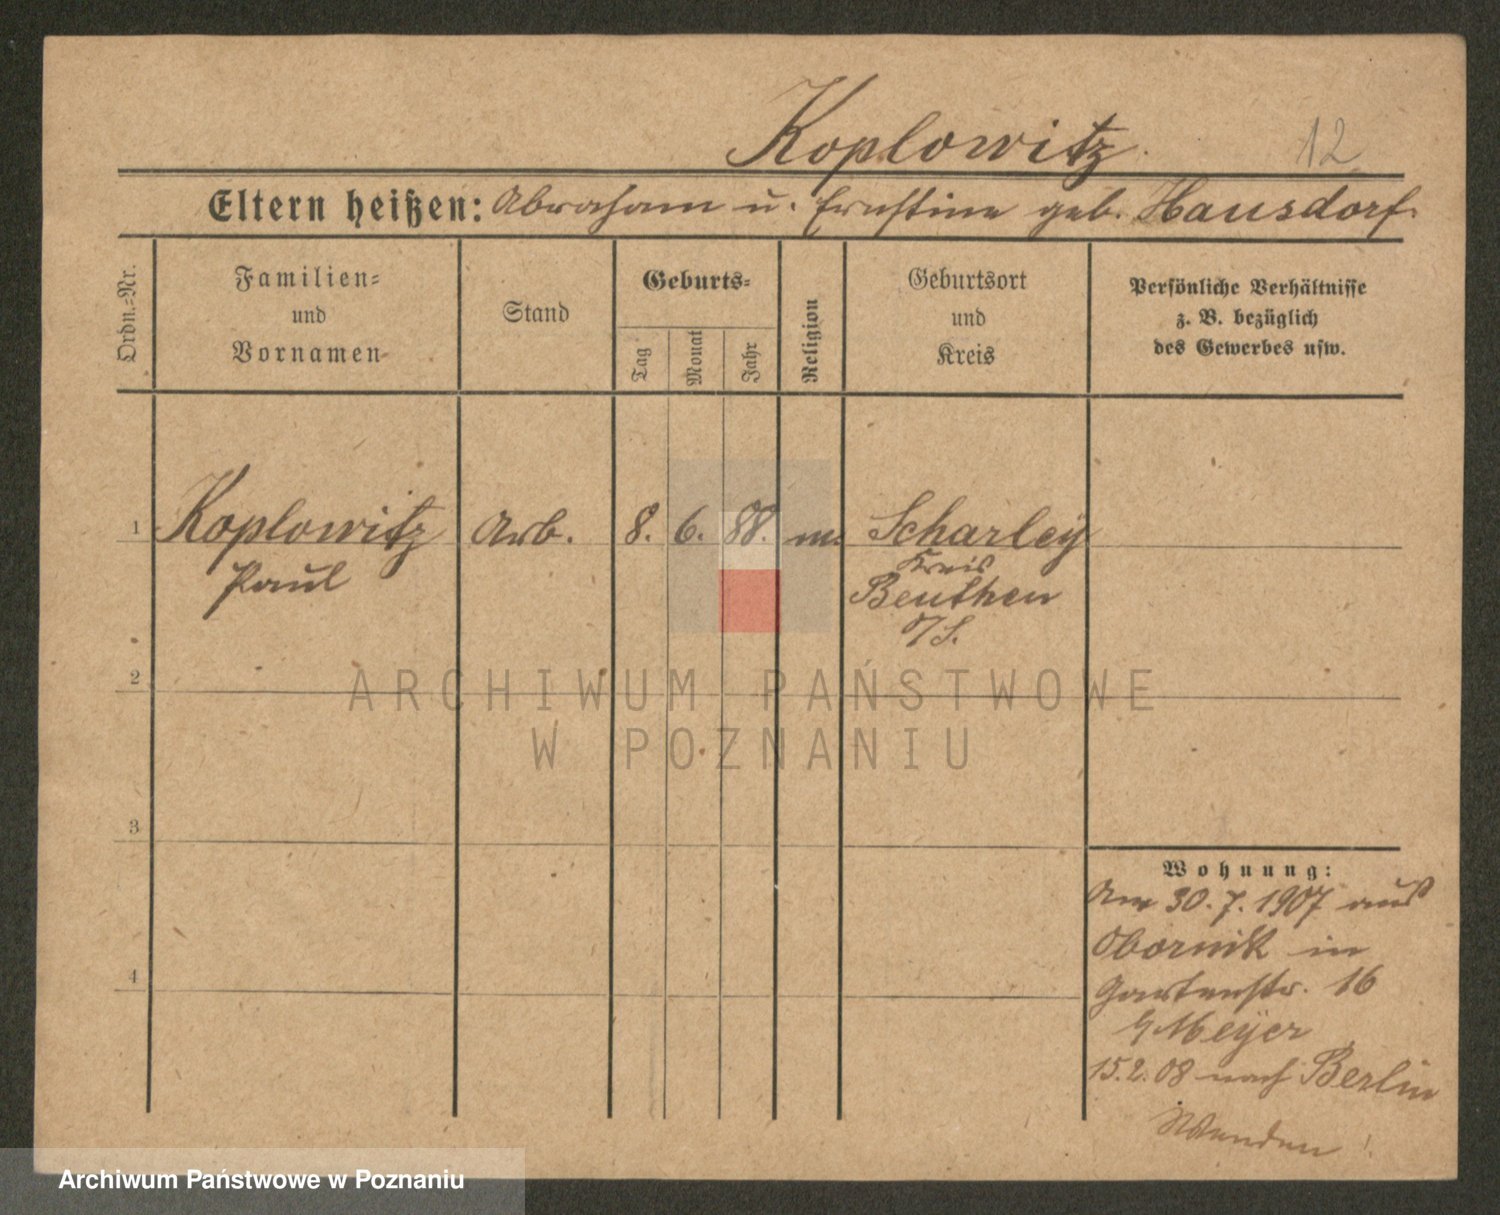 Koplowitz.
12
Eltern heißen: Abraham u. Ernstine geb. Hausdorf.
Ordn.-Nr.
Familien-
und
Vornamen
Stand
Geburts-
Tag
Monat
Jahr
Religion
Geburtsort
und
Kreis
Persönliche Verhältnisse
z. B. bezüglich
des Gewerbes usw.
1
Koplowitz Arb. 8. 6. 88. m. Scharley
Paul
Kreis
Beuthen
O/S.
2
ARCHIWUM PAŃSTWOWE
W POZNANIU
3
Wohnung:
Am 30. 7. 1907 aus
Obornik in
Gartenstr. 16
b/Meyer
15.2.08 nach Berlin
4
Wenden!
Archiwum Państwowe w Poznaniu